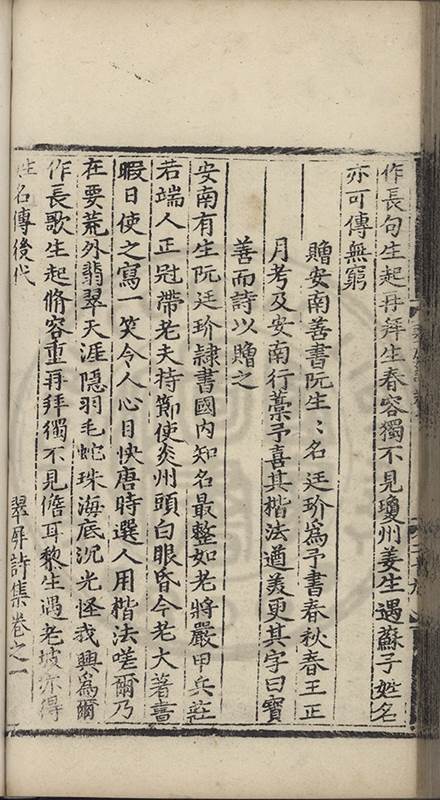 作長句生起再拜生春容獨不見瓊州姜生遇蘇子姓名
亦可傳無窮
贈安南善書阮生：名廷玠爲予書春秋春王正
月考及安南行藁予喜其楷法遒美更其字曰寶
善而詩以贈之
安南有生阮廷玠隷書國内知名最整如老將嚴甲兵莊
若端人正冠帶老夫持節使炎州頭白眼昏今老大著書
暇日使之寫一笑令人心目快唐時選人用楷法嗟爾乃
在要荒外翡翠天涯隱羽毛蛇珠海底沉光怪我興爲爾
作長歌生起脩容重再拜獨不見儋耳黎生遇老坡亦得
姓名傳後代
翠屏詩集卷之一